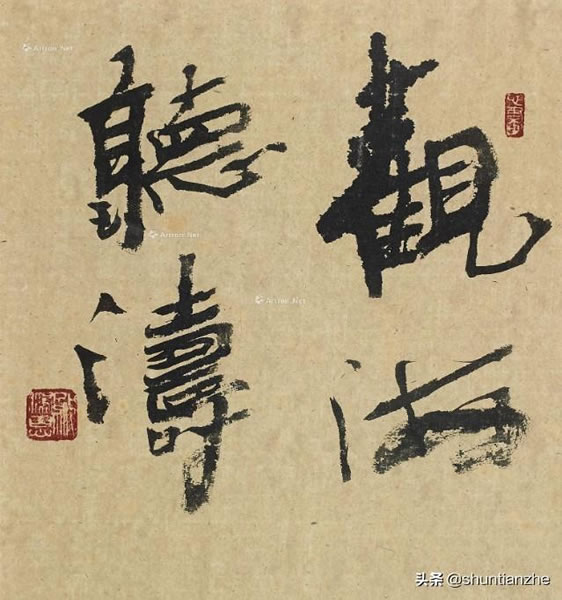 觀海
聽濤
Artron.Net
Artron.Net
Artron.Net
头条 @shuntianzhe